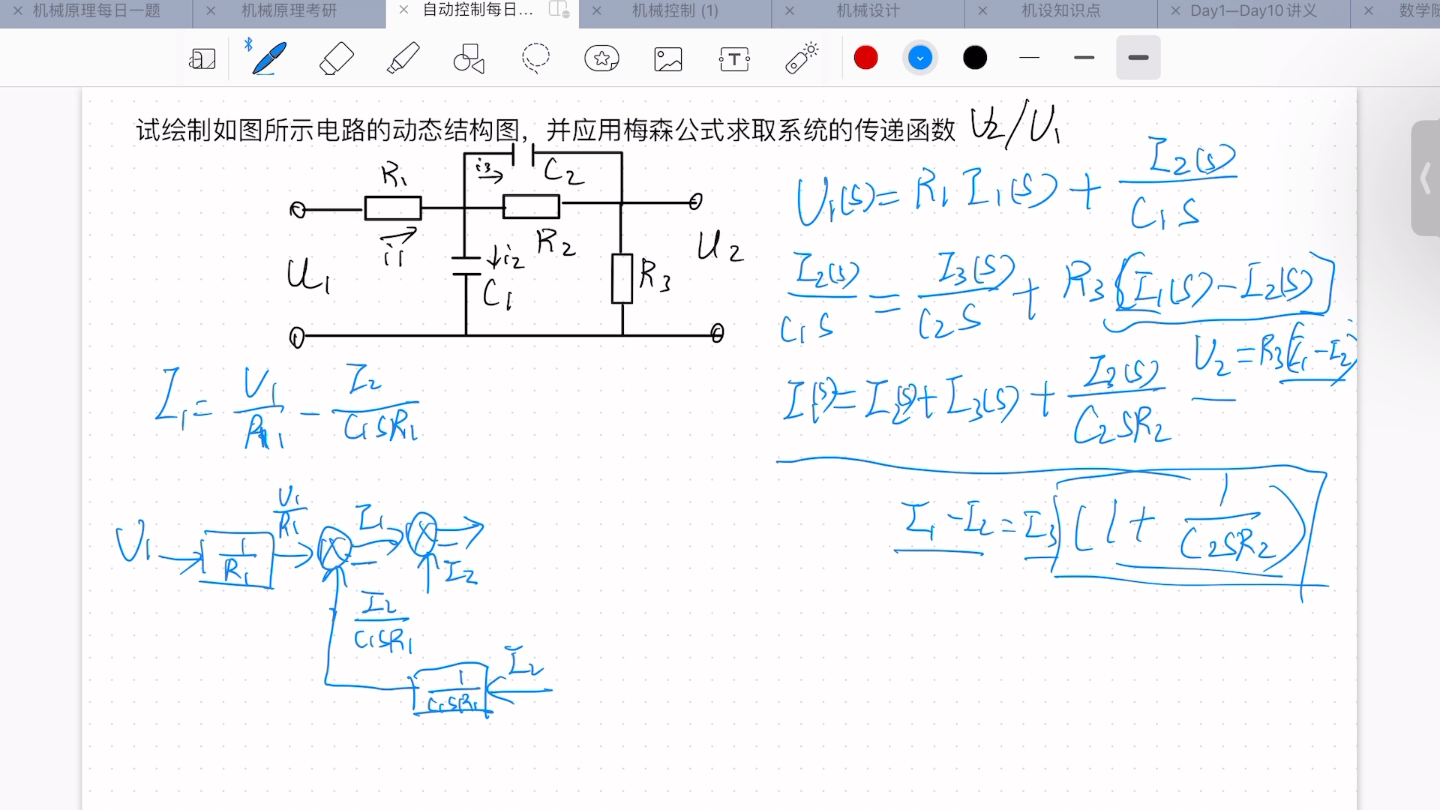 机械原理每日一题
机械原理考研
自动控制每日...
机械控制 (1)
机械设计
机设知识点
Day1—Day10 讲义
试绘制如图所示电路的动态结构图，并应用梅森公式求取系统的传递函数 U2/U1
R1
i3
C2
i1
R2
U1
i2
C1
R3
U2
U1(s)=R1 I1(s)+I2(s)/C1S
I2(s)/C1S=I3(s)/C2S+R3[I1(s)-I2(s)]
U2=R3(I1-I2)
I1(s)=I2(s)+I3(s)+I3(s)/C2SR2
I1-I2=I3(1+1/C2SR2)
I1=U1/R1-I2/C1SR1
U1
1/R1
U1/R1
I1
I2
I2/C1SR1
1/C1SR1
I2